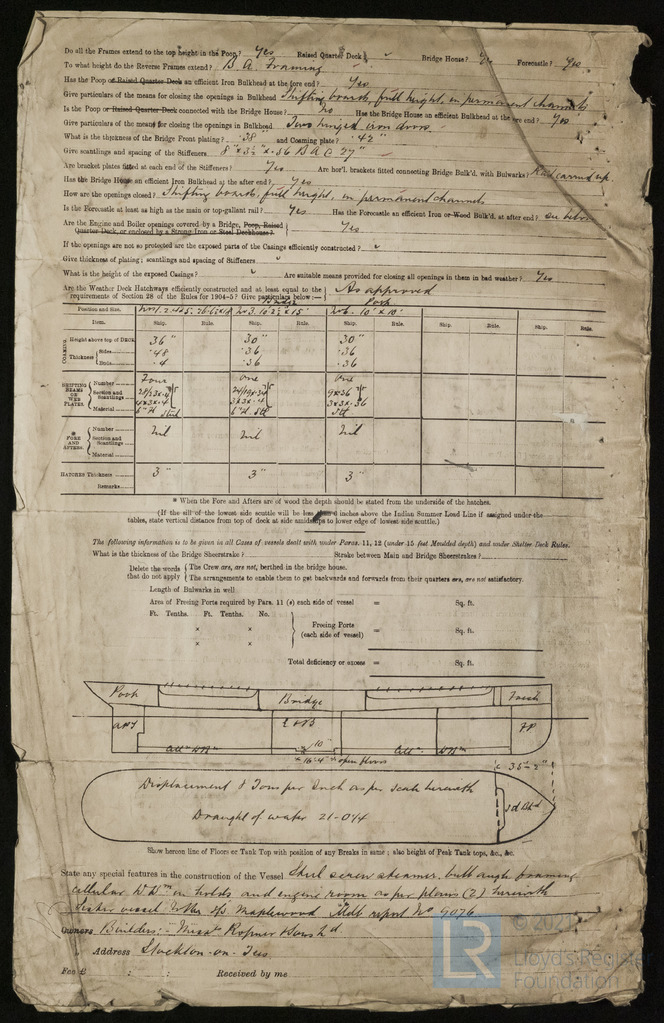 Do all the Frames extend to the top height in the Poop? Yes Raised Quarter Deck Bridge House? Forecastle? Yes
To what height do the Reverse Frames extend? B A. Framing
Has the Poop or Raised Quarter Deck an efficient Iron Bulkhead at the fore end? Yes
Give particulars of the means for closing the openings in Bulkhead Shifting boards, full height, in permanent channels
Is the Poop or Raised Quarter Deck connected with the Bridge House? No Has the Bridge House an efficient Bulkhead at the fore end? Yes
Give particulars of the means for closing the openings in Bulkhead Two hinged iron doors.
What is the thickness of the Bridge Front plating? .38 and Coaming plate? .42"
Give scantlings and spacing of the Stiffeners 27"
Are bracket plates fitted at each end of the Stiffeners? Yes Are hor'l. brackets fitted connecting Bridge Bulk'd. with Bulwarks? carried up.
Has the Bridge House an efficient Iron Bulkhead at the after end? Yes
How are the openings closed? Shifting boards full height, in permanent channels
Is the Forecastle at least as high as the main or top-gallant rail? Yes Has the Forecastle an efficient Iron or Wood Bulk'd. at after end? see below
Are the Engine and Boiler openings covered by a Bridge, Poop, Raised
Quarter Deck, or enclosed by a Strong Iron or Steel Deckhouse? Yes
If the openings are not so protected are the exposed parts of the Casings efficiently constructed?
Give thickness of plating; scantlings and spacing of Stiffeners
What is the height of the exposed Casings? Are suitable means provided for closing all openings in them in bad weather? Yes
Are the Weather Deck Hatchways efficiently constructed and at least equal to the
requirements of Section 28 of the Rules for 1904-5? Give particulars below:— As approved
Bridge Poop
Position and Size.
Item. Ship. Rule. Ship. Rule. Ship. Rule. Ship. Rule. Ship. Rule.
COAMING. Height above top of DECK 36" 30" 30"
Thickness Sides .48 .36 .36
Ends .4 .36 .36
SHIFTING BEAMS OR WEB PLATES. Number Four one one
Section and Scantlings
Material
* FORE AND AFTERS. Number Nil Nil Nil
Section and Scantlings
Material
HATCHES Thickness 3" 3" 3"
Remarks
* When the Fore and Afters are of wood the depth should be stated from the underside of the hatches.
(If the sill of the lowest side scuttle will be less inches above the Indian Summer Load Line if assigned under the
tables, state vertical distance from top of deck at side amidships to lower edge of lowest side scuttle.)
The following information is to be given in all Cases of vessels dealt with under Paras. 11, 12 (under 15 feet Moulded depth) and under Shelter Deck Rules.
What is the thickness of the Bridge Sheerstrake? Stroke between Main and Bridge Sheerstrakes?
Delete the words that do not apply { The Crew are, are not, berthed in the bridge house.
The arrangements to enable them to get backwards and forwards from their quarters are, are not satisfactory.
Length of Bulwarks in well
Area of Freeing Ports required by Para. 11 (e) each side of vessel = Sq. ft.
Ft. Tenths. Ft. Tenths. No.
× × Freeing Ports (each side of vessel) = Sq. ft.
Total deficiency or excess = Sq. ft.
Poop Bridge
APT E & B FP
10"
16'.4" open floors
35'-2"
Displacement & Tons per Inch as per scale herewith
Draught of water 21-0¼
Show hereon line of Floors or Tank Top with position of any Breaks in same; also height of Peak Tank tops, &c., &c.
State any special features in the construction of the Vessel Steel screw steamer, bulb angle framing
cellular in holds and engine room as per plans (2) herewith
Sister vessel to the S/S Maplewood report No 9076
Owners Builders:- Mess Ropner & Sons Ld
" Address Stockton-on-Tees
Fee £ : : Received by me
© 2021
LR
Lloyd's Register
Foundation